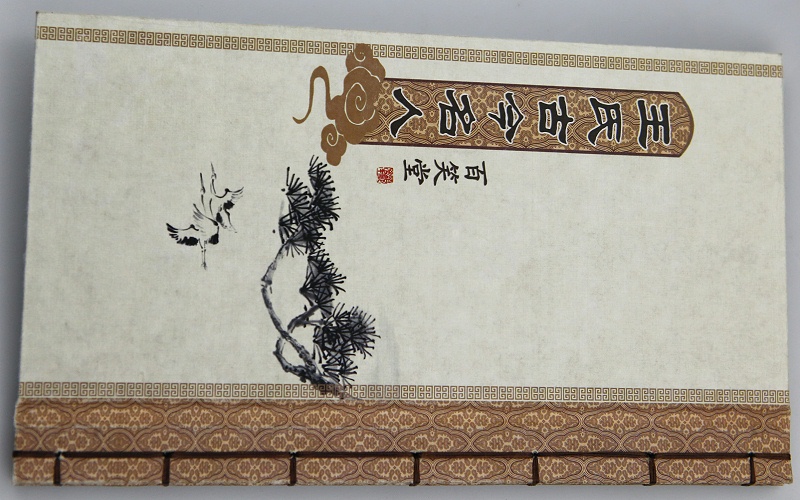 王氏古今名人
百笑堂